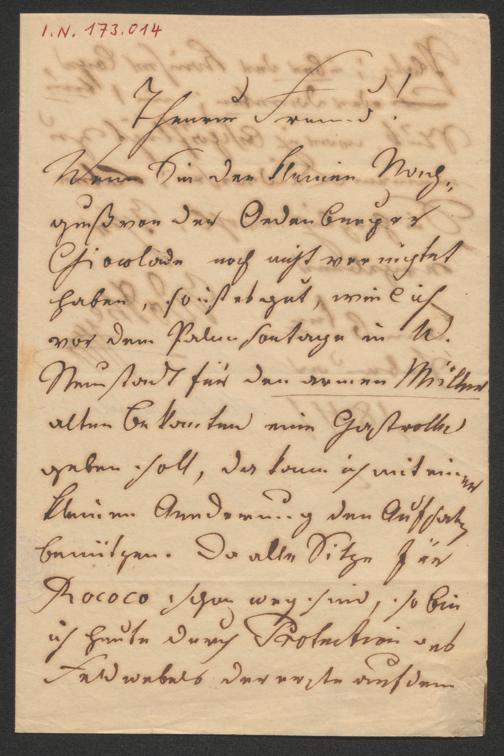 I.N. 173.014
Theurer Freund!
Wenn Sie den kleinen Nach-
guß von der Oedenburger
Chiocolade noch nicht vernichtet
haben, so ist es gut, weil ich
vor dem Palmsontage in W.
Neustadt für den armen Müller
alten Bekannten eine Gastrolle
geben soll, da kann ich mit einer
kleinen Aenderung den Aufsatz
benützen. Da alle Sitze für
Rococo schon weg sind, so bin
ich heute durch Protection des
Feldwebels der erste auf dem